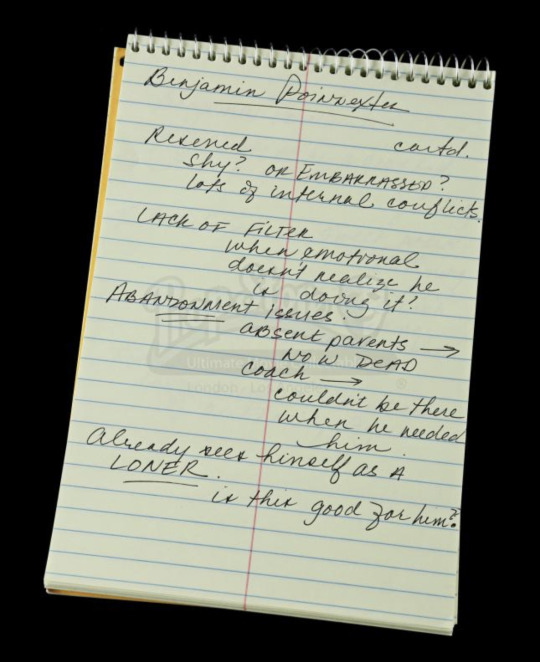 Benjamin Poinnexter
contd.
Reserved
Shy? OR EMBARRASSED?
lots of internal conflicts.
LACK OF FILTER
when emotional
doesn't realize he
is doing it?
ABANDONMENT issues:
absent parents →
NOW DEAD
coach →
couldn't be there
when he needed
him.
Already sees himself as A
LONER.
is this good for him?
Ultimate
London - Los